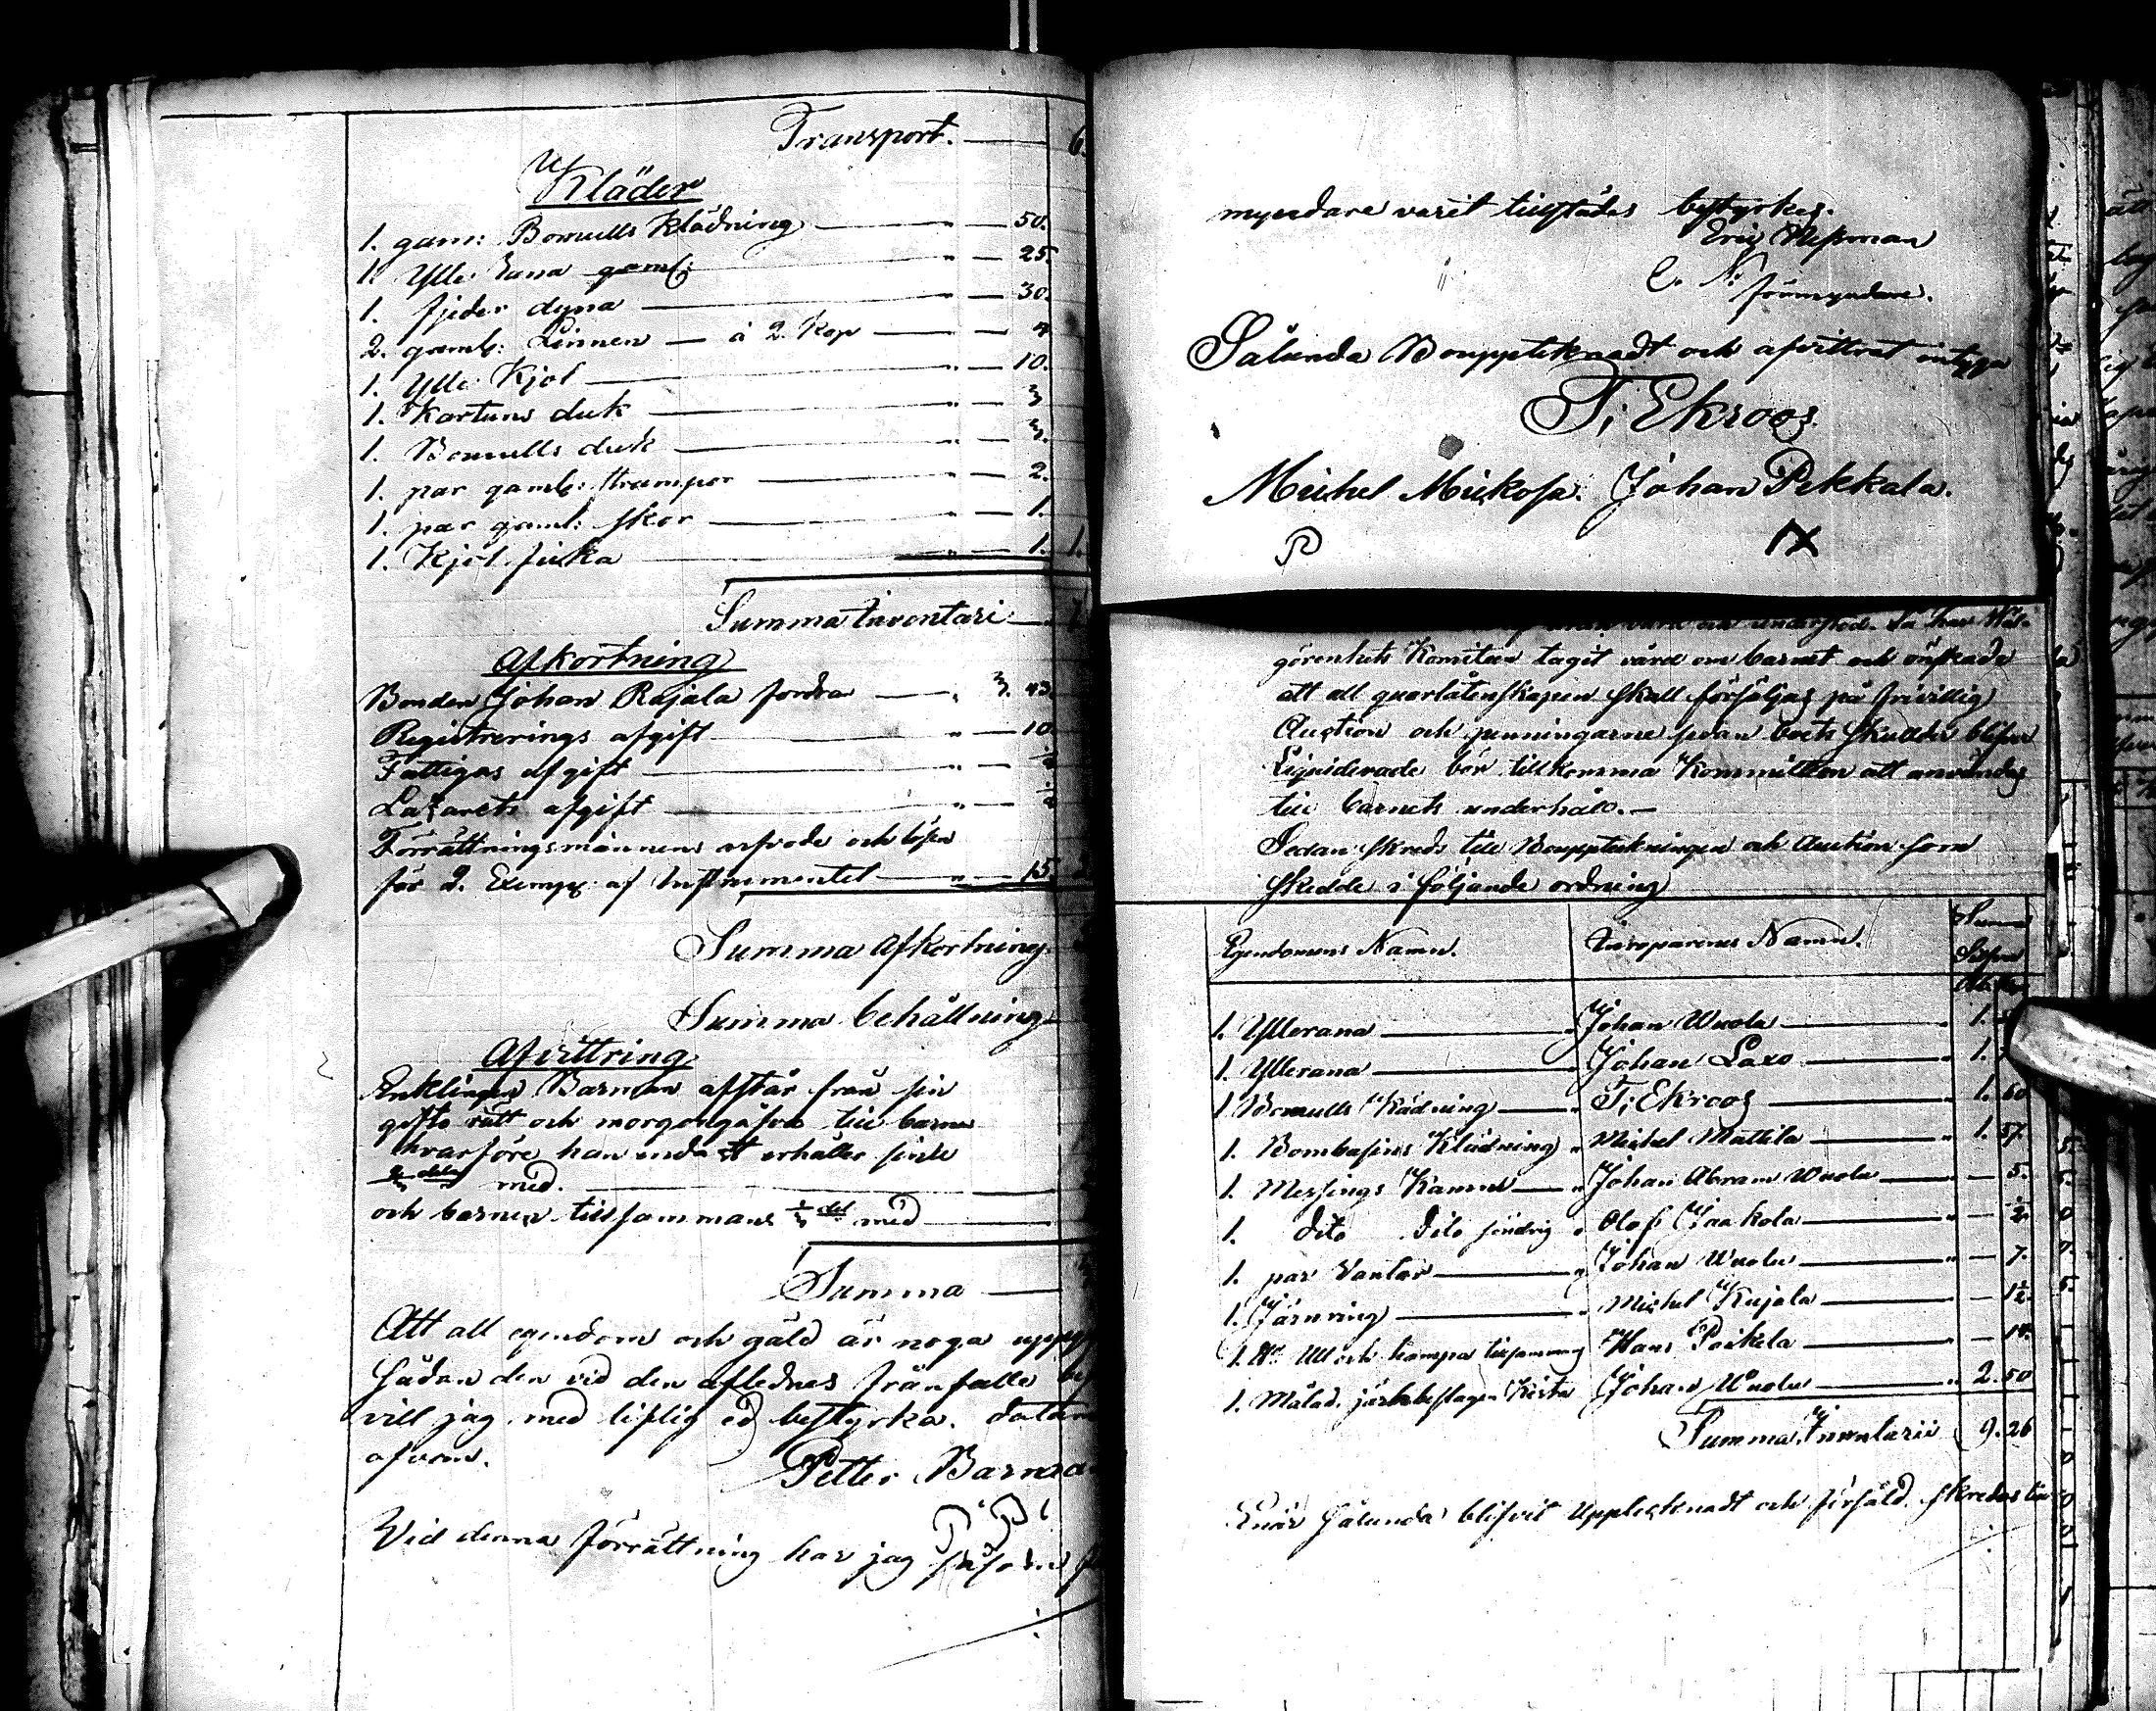 Transport. 6
Kläder
1. gam: Bomulls Klädning " 50.
1. Ylle Rana gaml: " 25.
1. fjeder dyna " 30.
2. gaml: Linnen — á 2. Kop " 4
1. Ylle Kjol " 10.
1. Kartuns duk " 3
1. Bomulls duk " 3.
1. par gaml: strumpor " 2.
1. par gaml: skor " 1.
1. Kjol ficka " 1. 1.
Summa Inventari
Afkortning
Bonden Johan Rajala fordra " 3. 43.
Registrerings afgift " 10
Fattigas afgift "
Lazarets afgift "
Förrättningsmännens arfvode och lösen
för 2. Exempl: af Instrumentet " 15.
Summa Afkortning
Summa behållning
Afvittring
Enklingen Barman afstår från sin
gifto rätt och morgongåfva till barnen
hvarföre han endast erhåller sine
med.
och barnen tillsammans 1/3 del med
Summa
Att all egendom och gäld är noga uppg
sådan den vid den aflednes frånfalle bef
vill jag med liflig ed bestyrka. datum
ofvan.
Petter Barma
Vid denna förrättning har jag såsom f
myndare varit tillstädes bestyrkes.
Eric Nessman
förmyndare.
Sålunda Boupptecknadt och afvittrat intyga
T; Ekroos.
Michel Mickosa. Johan Pekkala.
vård och understöd. Så har Väl-
görenhets Komiteen tagit vård om barnet och önskade
att all quarlåtenskapen skall försäljas på frivillig
Auction och penningarne sedan boets skulder blifvit
Liqviderade bör tillkomma Kommitteen att användas
till barnets underhåll.—
Sedan skreds till Bouppteckningen och Auction som
skedde i följande ordning
Egendomens Namn. Inroparenes Namn. Summa Silfver
1. Yllerana " Johan Wuola " 1.
1. Yllerana " Johan Laxo " 1.
1. Bomulls Klädning " T; Ekroos " 1. 60
1. Bombasins Klädning " Michel Mattila " 1. 57.
1. Messings Kanna " Johan Abram Wuola " — 5.
1. dito dito sändrig " Olof Jaakola " — 1/2
1. par Vantar " Johan Wuola " — 7.
1. Järnring " Michel Kujala " — 1 1/2
1. Ull och hampa tillsammans Hans Poikela " — 14.
1. Målad järnbeslagen Kista Johan Wuola " 2. 50
Summa Inventarii 9. 26
Enär Sålunda blifvit Upptecknadt och försåld. skredes till